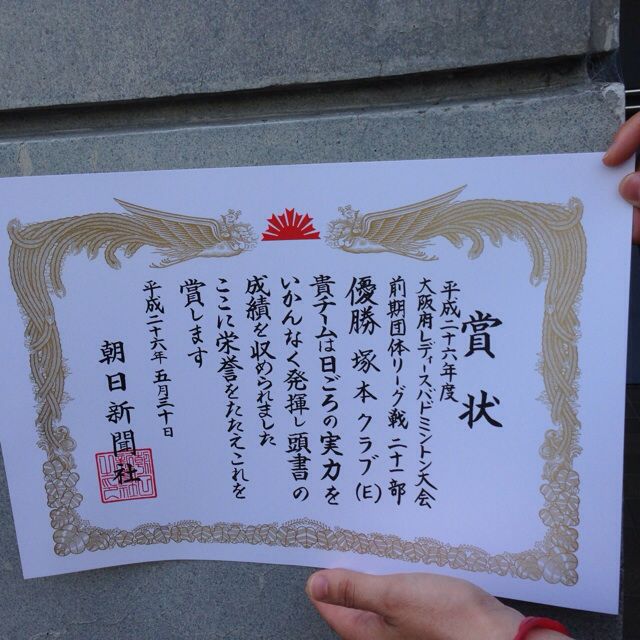 賞状
平成二十六年度
大阪府レディースバドミントン大会
前期団体リーグ戦 二十一部
優勝 塚本クラブ(E)
貴チームは日ごろの実力を
いかんなく発揮し頭書の
成績を収められました
ここに栄誉をたたえこれを
賞します
平成二十六年五月三十日
朝日新聞社